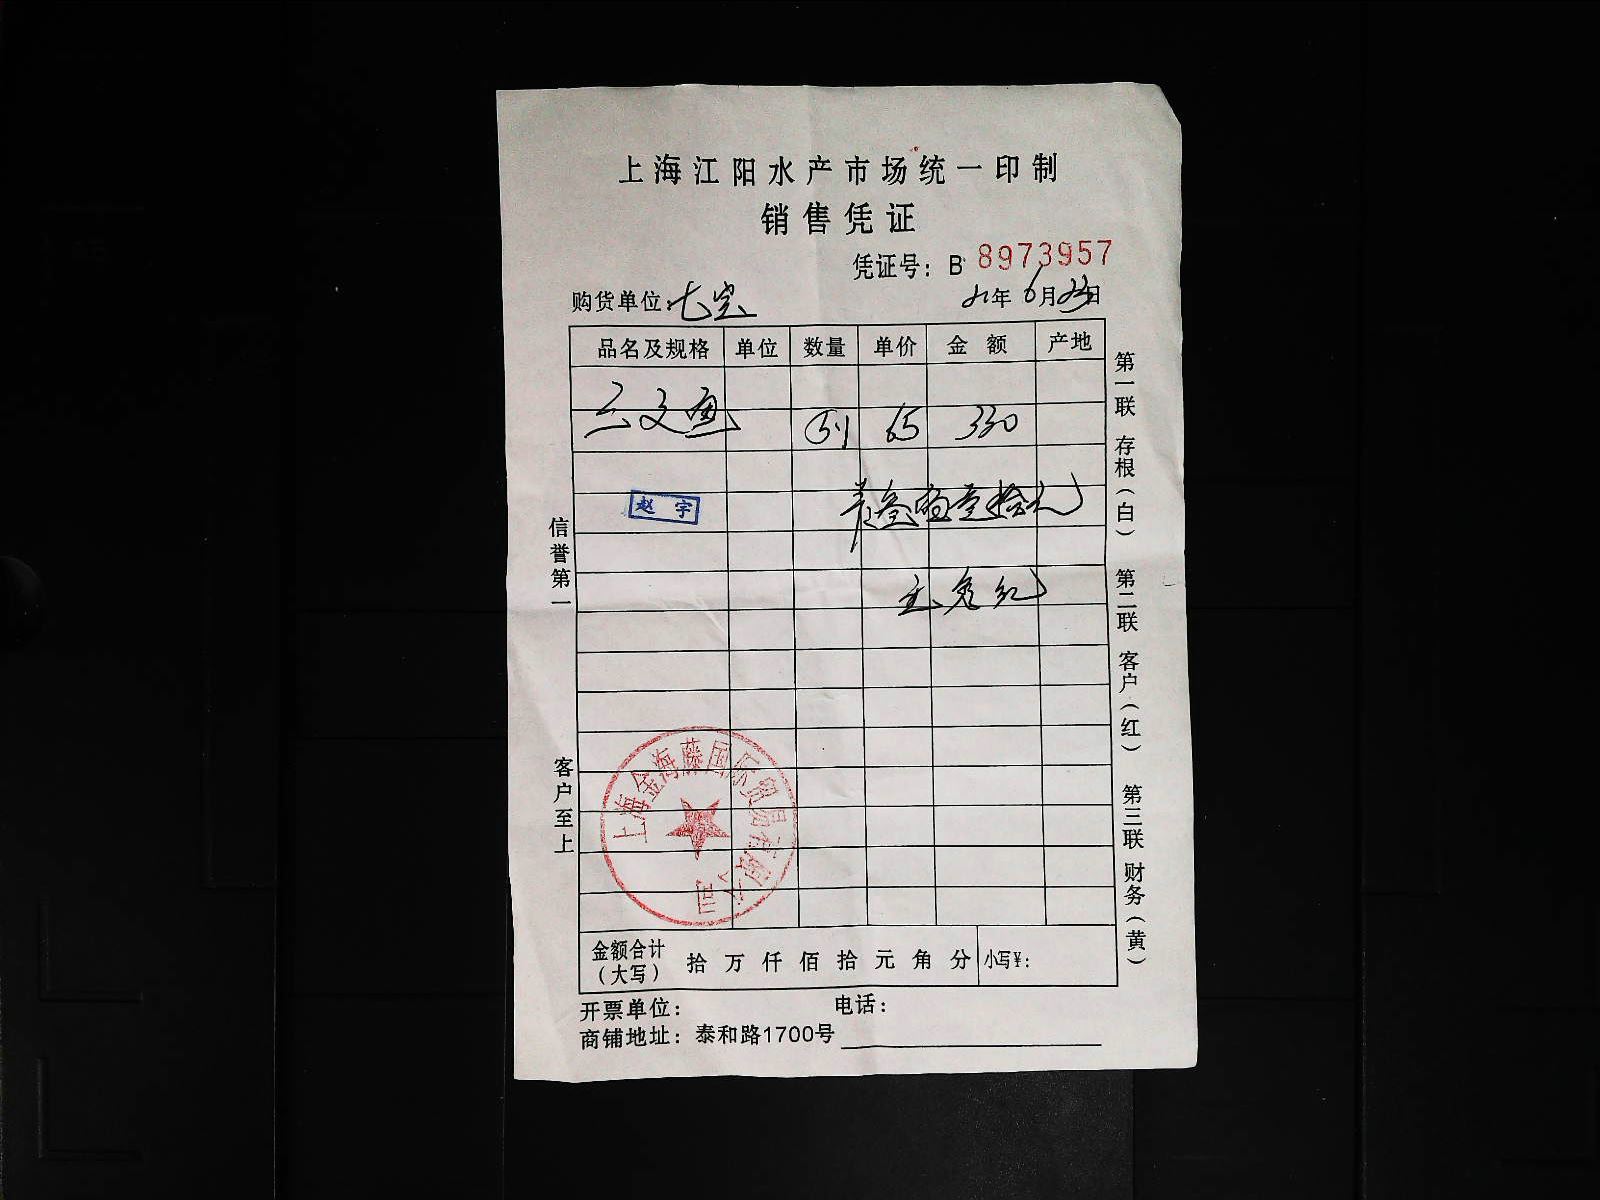 上海江阳水产市场统一印制
销售凭证
凭证号：B 8973957
购货单位：七宝 21年6月23日
品名及规格 单位 数量 单价 金额 产地
三文鱼 65 330
赵宇
上海金海藤国际贸易有限公司
金额合计（大写） 拾 万 仟 佰 拾 元 角 分 小写¥：
开票单位： 电话：
商铺地址：泰和路1700号
信誉第一 客户至上
第一联 存根（白） 第二联 客户（红） 第三联 财务（黄）